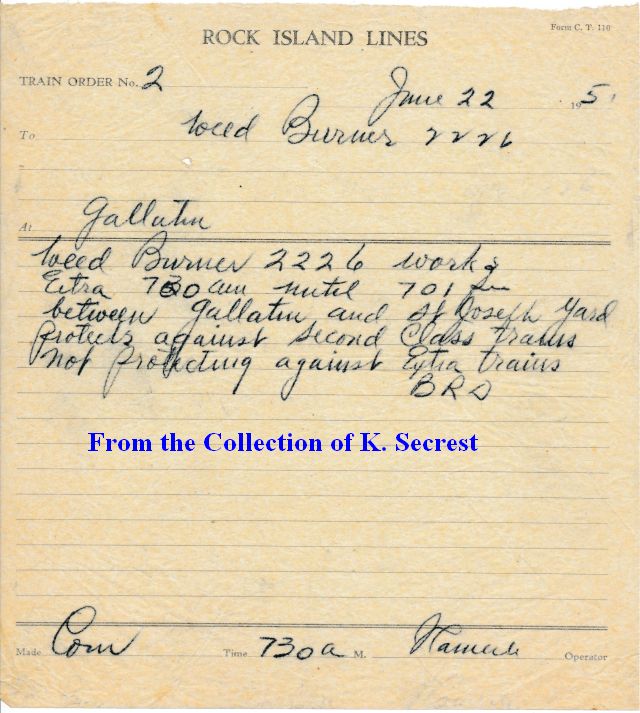 Form C. T. 110
ROCK ISLAND LINES
TRAIN ORDER No. 2
June 22 195
To Weed Burner 2226
At Gallatin
Weed Burner 2226 works
Extra 730 am until 701 Pm
between Gallatin and St Joseph Yard
protects against Second Class trains
Not protecting against Extra trains
BRD
From the Collection of K. Secrest
Made Com Time 730a M. Operator